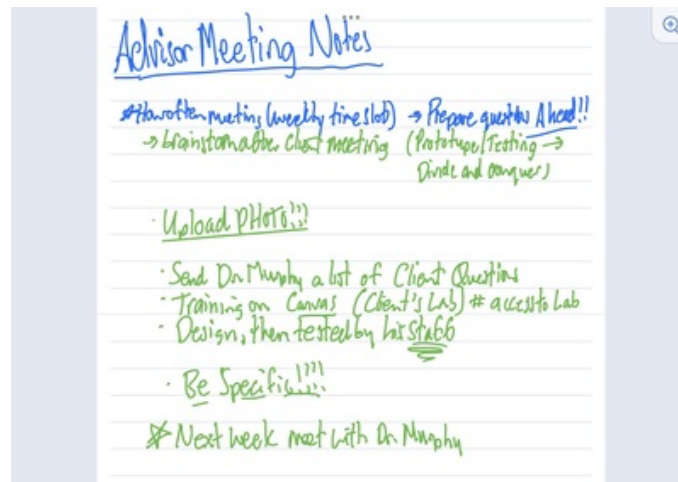 Advisor Meeting Notes
*How often meeting (weekly time slot) → Prepare question Ahead!!
→ brainstorm after client meeting (Prototype/Testing →
Divide and conquer)
· Upload PHOTO!!!
· Send Dr. Murphy a list of Client Questions
· Training on Canvas (Client's Lab) # access to Lab
· Design, then tested by his staff
· Be Specific!!!!
* Next week meet with Dr. Murphy